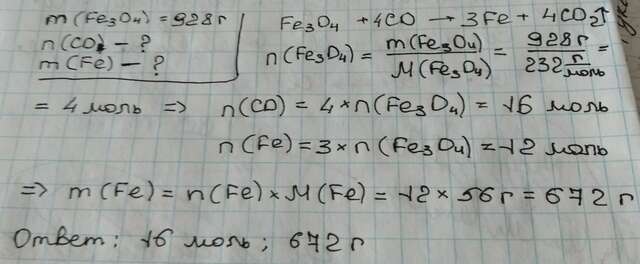 m(Fe₃O₄) = 928 г
n(CO) – ?
m(Fe) – ?
Fe₃O₄ + 4CO → 3Fe + 4CO₂↑
n(Fe₃O₄) = m(Fe₃O₄) / M(Fe₃O₄) = 928 г / 232 г/моль =
= 4 моль => n(CO) = 4 × n(Fe₃O₄) = 16 моль
n(Fe) = 3 × n(Fe₃O₄) = 12 моль
=> m(Fe) = n(Fe) × M(Fe) = 12 × 56 г = 672 г
Ответ: 16 моль; 672 г